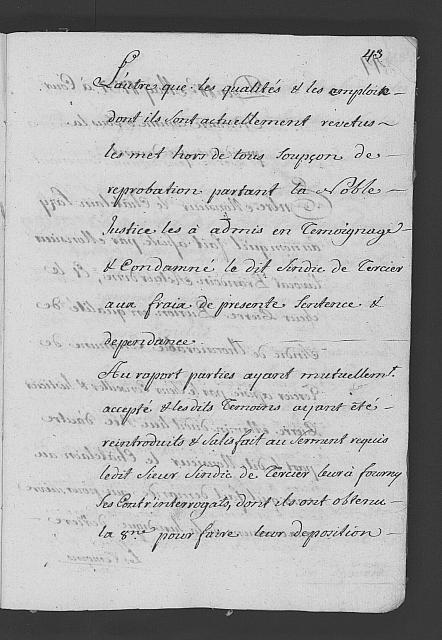 43
d'autres que les qualités & les emplois
dont ils sont actuellement revetus
les met hors de tous soupçon de
reprobation partant la Noble
Justice les à admis en Temoignage
& Condamné le dit Sindic de Tercier
aux frais de presente Sentence &
dependance
Au raport parties ayant mutuellemt.
accepté & lesdits Temoins ayant été
reintroduits & satisfait au Serment requis
ledit Sieur Sindic de Tercier leur à fourny
ses Contr'interrogats, dont ils ont obtenu
la 8ne pour faire leur deposition